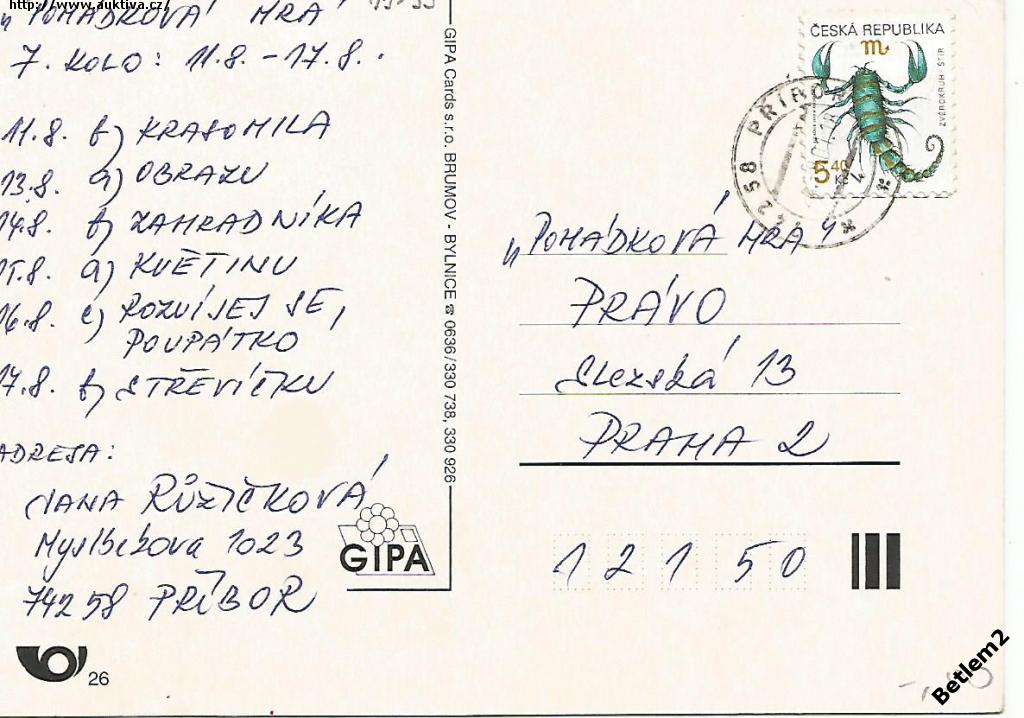 http://www.auktiva.cz/
"POHÁDKOVÁ HRA"
7. KOLO: 11.8. - 17.8.
11.8. b) KRASOMILA
13.8. a) OBRAZU
14.8. b) ZAHRADNÍKA
15.8. a) KVĚTINU
16.8. c) ROZVÍJEJ SE,
POUPÁTKO
17.8. b) STŘEVÍČKU
ADRESA:
JANA RŮŽIČKOVÁ
Myslbekova 1023
74258 PŘÍBOR
GIPA
26
GIPA Cards s.r.o. BRUMOV - BYLNICE ☎ 0636/330 738, 330 926
ČESKÁ REPUBLIKA
ZVĚROKRUH - ŠTÍR
5 40
74258 PŘÍBOR
"POHÁDKOVÁ HRA"
PRÁVO
Slezská 13
PRAHA 2
121 50
Betlem2